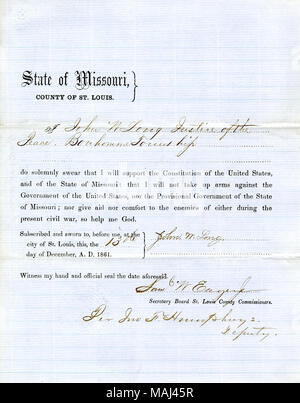 State of Missouri,
COUNTY OF ST. LOUIS.
I John W Long Justice of the
Peace. Bonhomme Township
do solemnly swear that I will support the Constitution of the United States,
and of the State of Missouri: that I will not take up arms against the
Government of the United States, nor the Provisional Government of the State
of Missouri; nor give aid nor comfort to the enemies of either during the
present civil war, so help me God.
Subscribed and sworn to, before me, at the
city of St. Louis, this, the 13th
day of December, A. D. 1861.
John W Long
Witness my hand and official seal the date aforesaid.
W Eager
Secretary Board St. Louis County Commissioners.
Per Jno F Humphreys
Deputy.
alamy
Image ID: MAJ45R
www.alamy.com